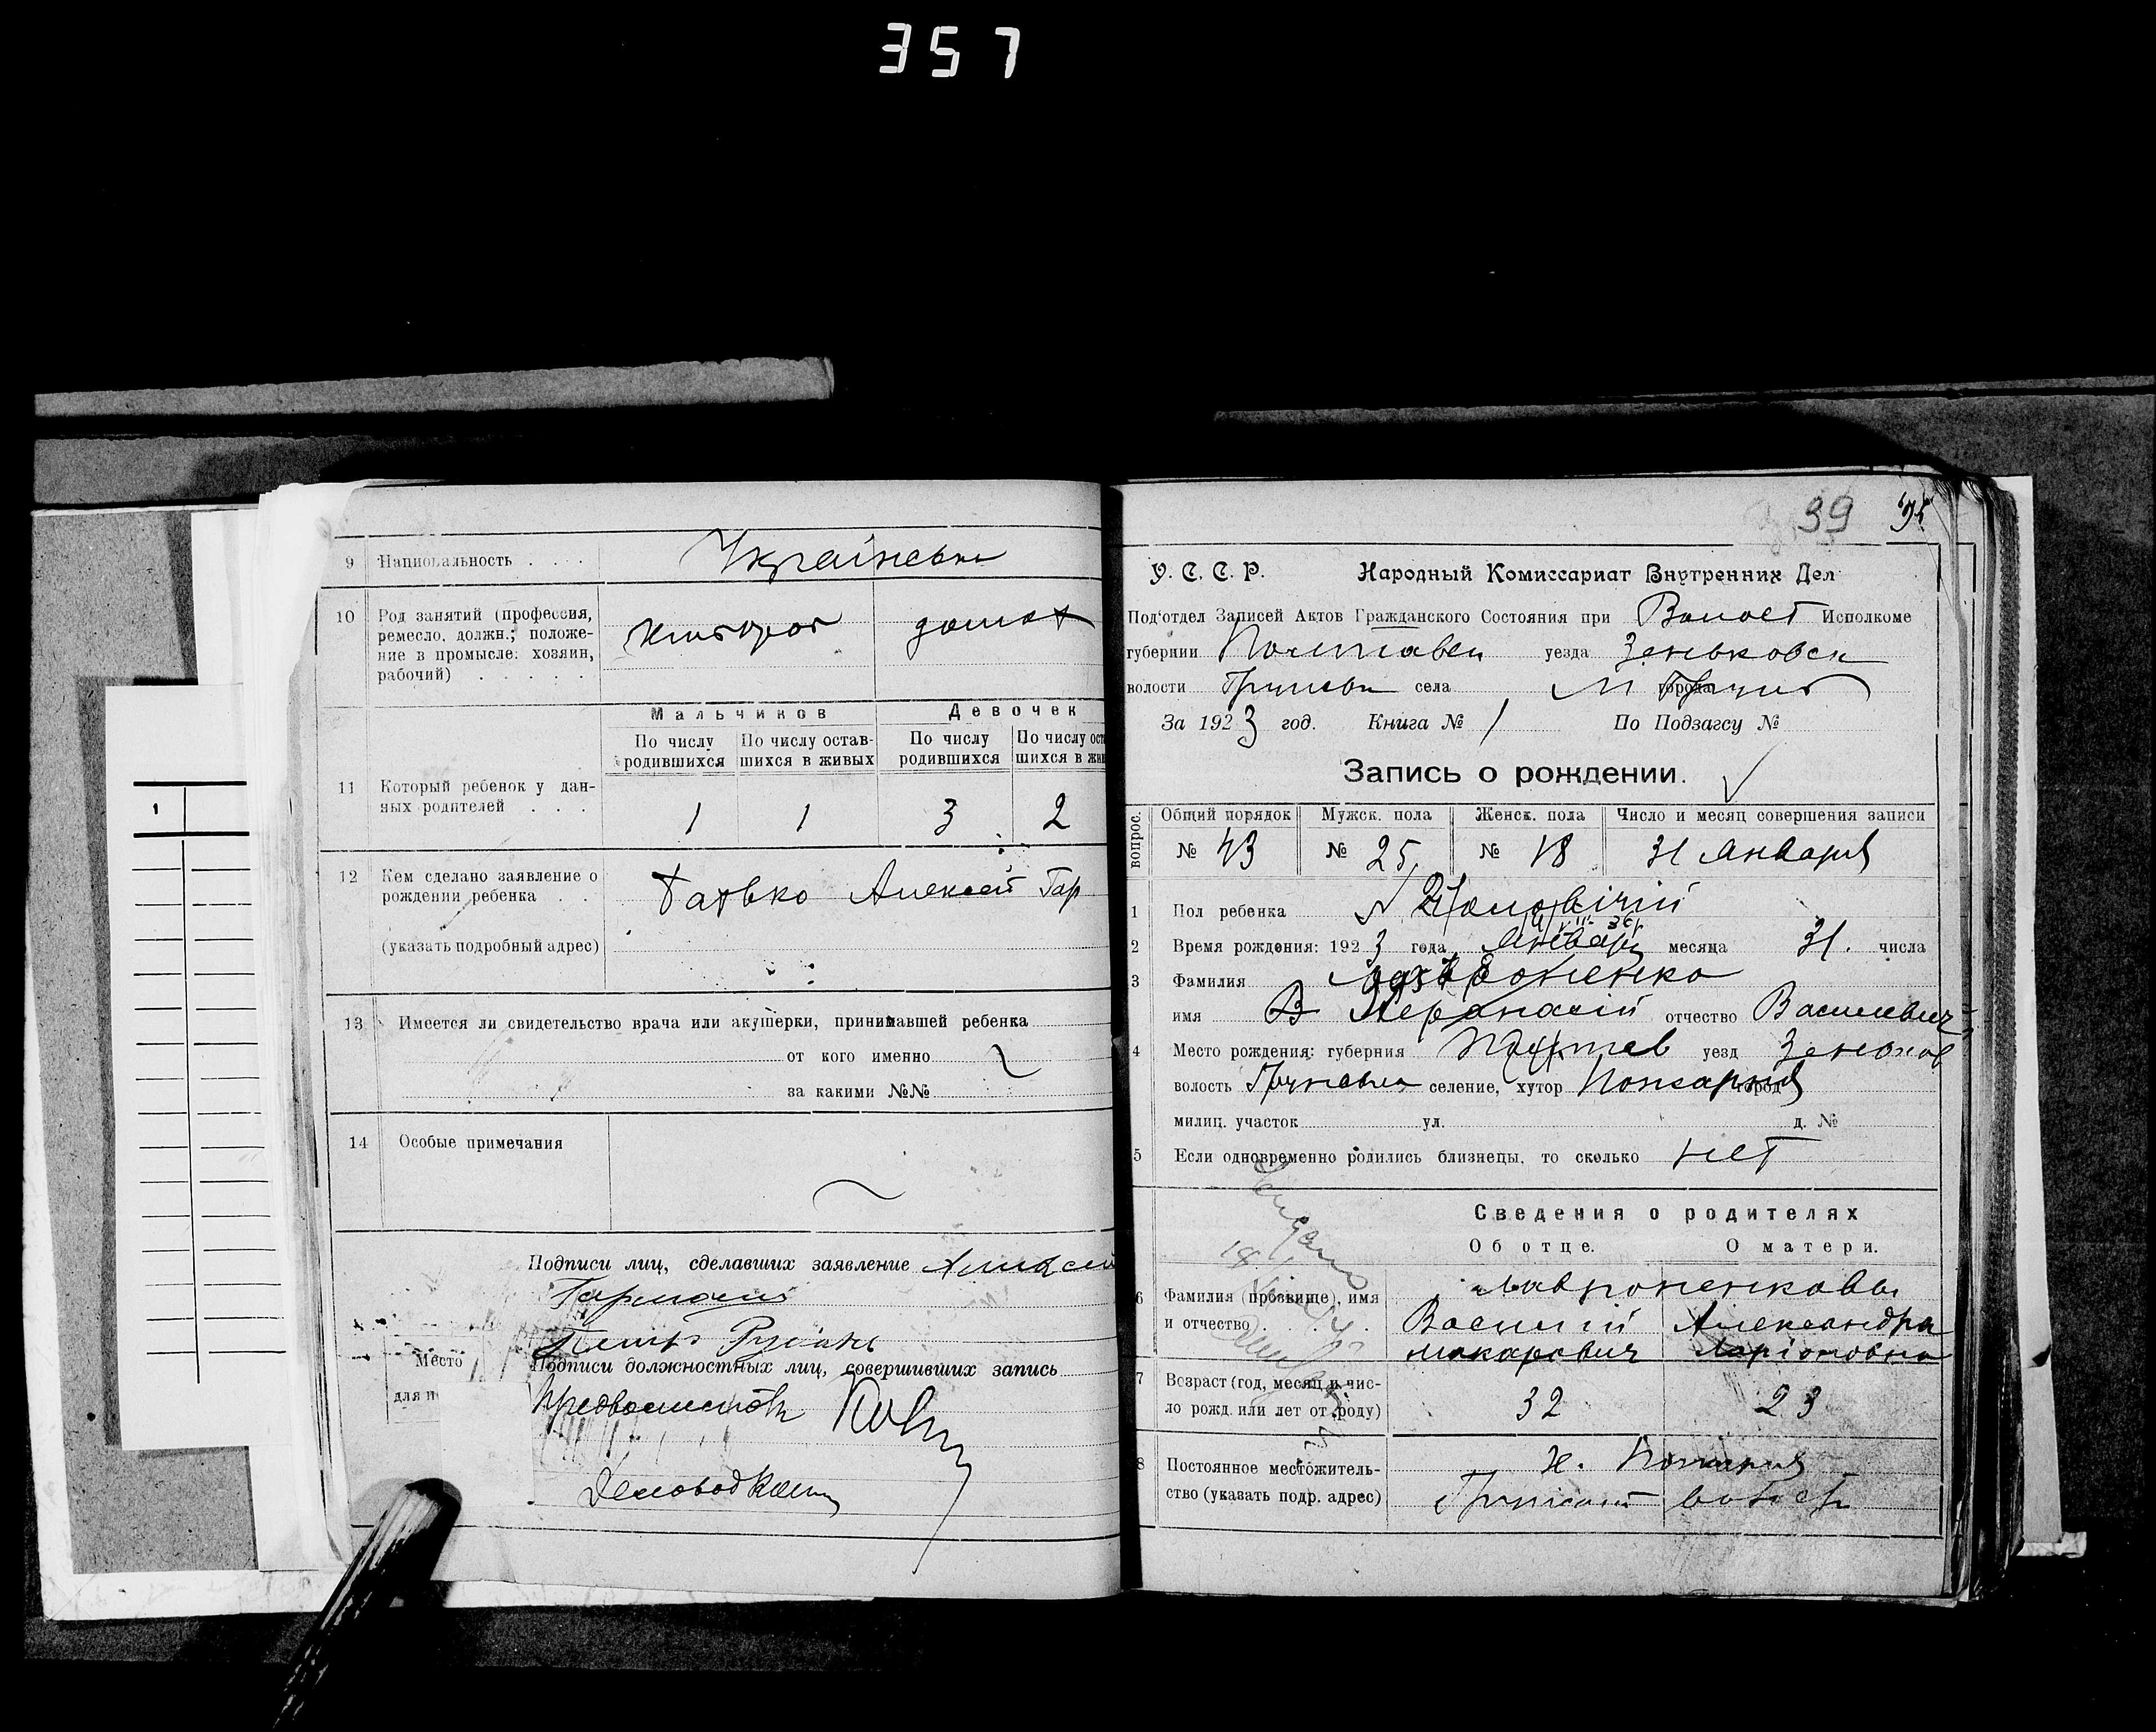 357
9 Национальность Українськ
10 Род занятий (профессия,
ремесло, должн.; положе-
ние в промысле: хозяин,
рабочий)
хлебороб
домох
Мальчиков
Девочек
По числу
родившихся
По числу остав-
шихся в живых
По числу
родившихся
По числу ост
шихся в жив
11 Который ребенок у дан-
ных родителей
1 1 3 2
12 Кем сделано заявление о
рождении ребенка
Батько Алексей Гар
(указать подробный адрес)
13 Имеется ли свидетельство врача или акушерки, принимавшей ребенка
от кого именно
за какими №№
14 Особые примечания
Подписи лиц, сделавших заявление Алексей
Петр
Место
Подписи должностных лиц, совершивших запись
для п
Предволисполк
Деловод
1
39
У. С. С. Р. Народный Комиссариат Внутренних Дел
Под'отдел Записей Актов Гражданского Состояния при Волост Исполкоме
губернии Полтавск уезда Зеньковск
волости Грунськ села города м Грунь
За 1923 год. Книга № 1 По Подзагсу №
Запись о рождении.
вопрос.
Общий порядок Мужск. пола Женск. пола Число и месяц совершения записи
№ 43 № 25 № 18 31 Января
1 Пол ребенка Чоловічий
2 Время рождения: 1923 года Январ месяца 31. числа
3 Фамилия Лавроненко
имя отчество Василевич
4 Место рождения: губерния Полтав уезд Зеньков
волость Грунськ селение, хутор Пожарня город
милиц. участок ул. д. №
5 Если одновременно родились близнецы, то сколько нет
Сведения о родителях
Об отце. О матери.
6 Фамилия (прозвище), имя
и отчество
Лавроненковы
Василий Александра
Макарович Ларіоновна
7 Возраст (год, месяц и чис-
ло рожд. или лет от роду)
32 23
8 Постоянное местожитель-
ство (указать подр. адрес)
х. Пожарня
Грунской волости